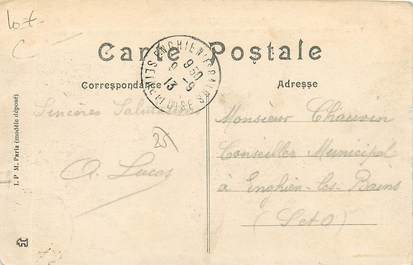 Lot
C
Carte Postale
ENGHIEN
9 30
9 -9
13
SEINE-ET-OISE
Correspondance
Adresse
Sincères Salutations
Monsieur Chauvin
Conseiller Municipal
à Enghien-les-Bains
(S et O)
25
O. Lucas
I. P. M. Paris (modèle déposé)